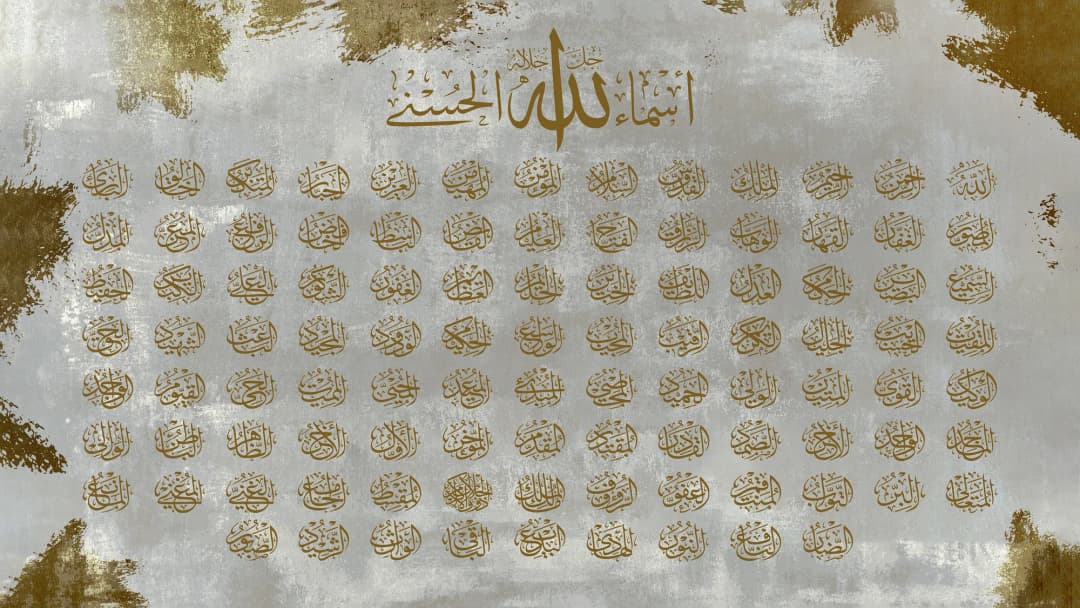 أسماء الله جل جلاله الحسنى
الله الرحمن الرحيم الملك القدوس السلام المؤمن المهيمن العزيز الجبار المتكبر الخالق البارئ
المصور الغفار القهار الوهاب الرزاق الفتاح العليم القابض الباسط الخافض الرافع المعز المذل
السميع البصير الحكم العدل اللطيف الخبير الحليم العظيم الغفور الشكور العلي الكبير الحفيظ
المقيت الحسيب الجليل الكريم الرقيب المجيب الواسع الحكيم الودود المجيد الباعث الشهيد الحق
الوكيل القوي المتين الولي الحميد المحصي المبدئ المعيد المحيي المميت الحي القيوم الواجد
الماجد الواحد الأحد الصمد القادر المقتدر المقدم المؤخر الأول الآخر الظاهر الباطن الوالي
المتعالي البر التواب المنتقم العفو الرؤوف مالك الملك ذو الجلال والإكرام المقسط الجامع الغني المغني المانع
الضار النافع النور الهادي البديع الباقي الوارث الرشيد الصبور